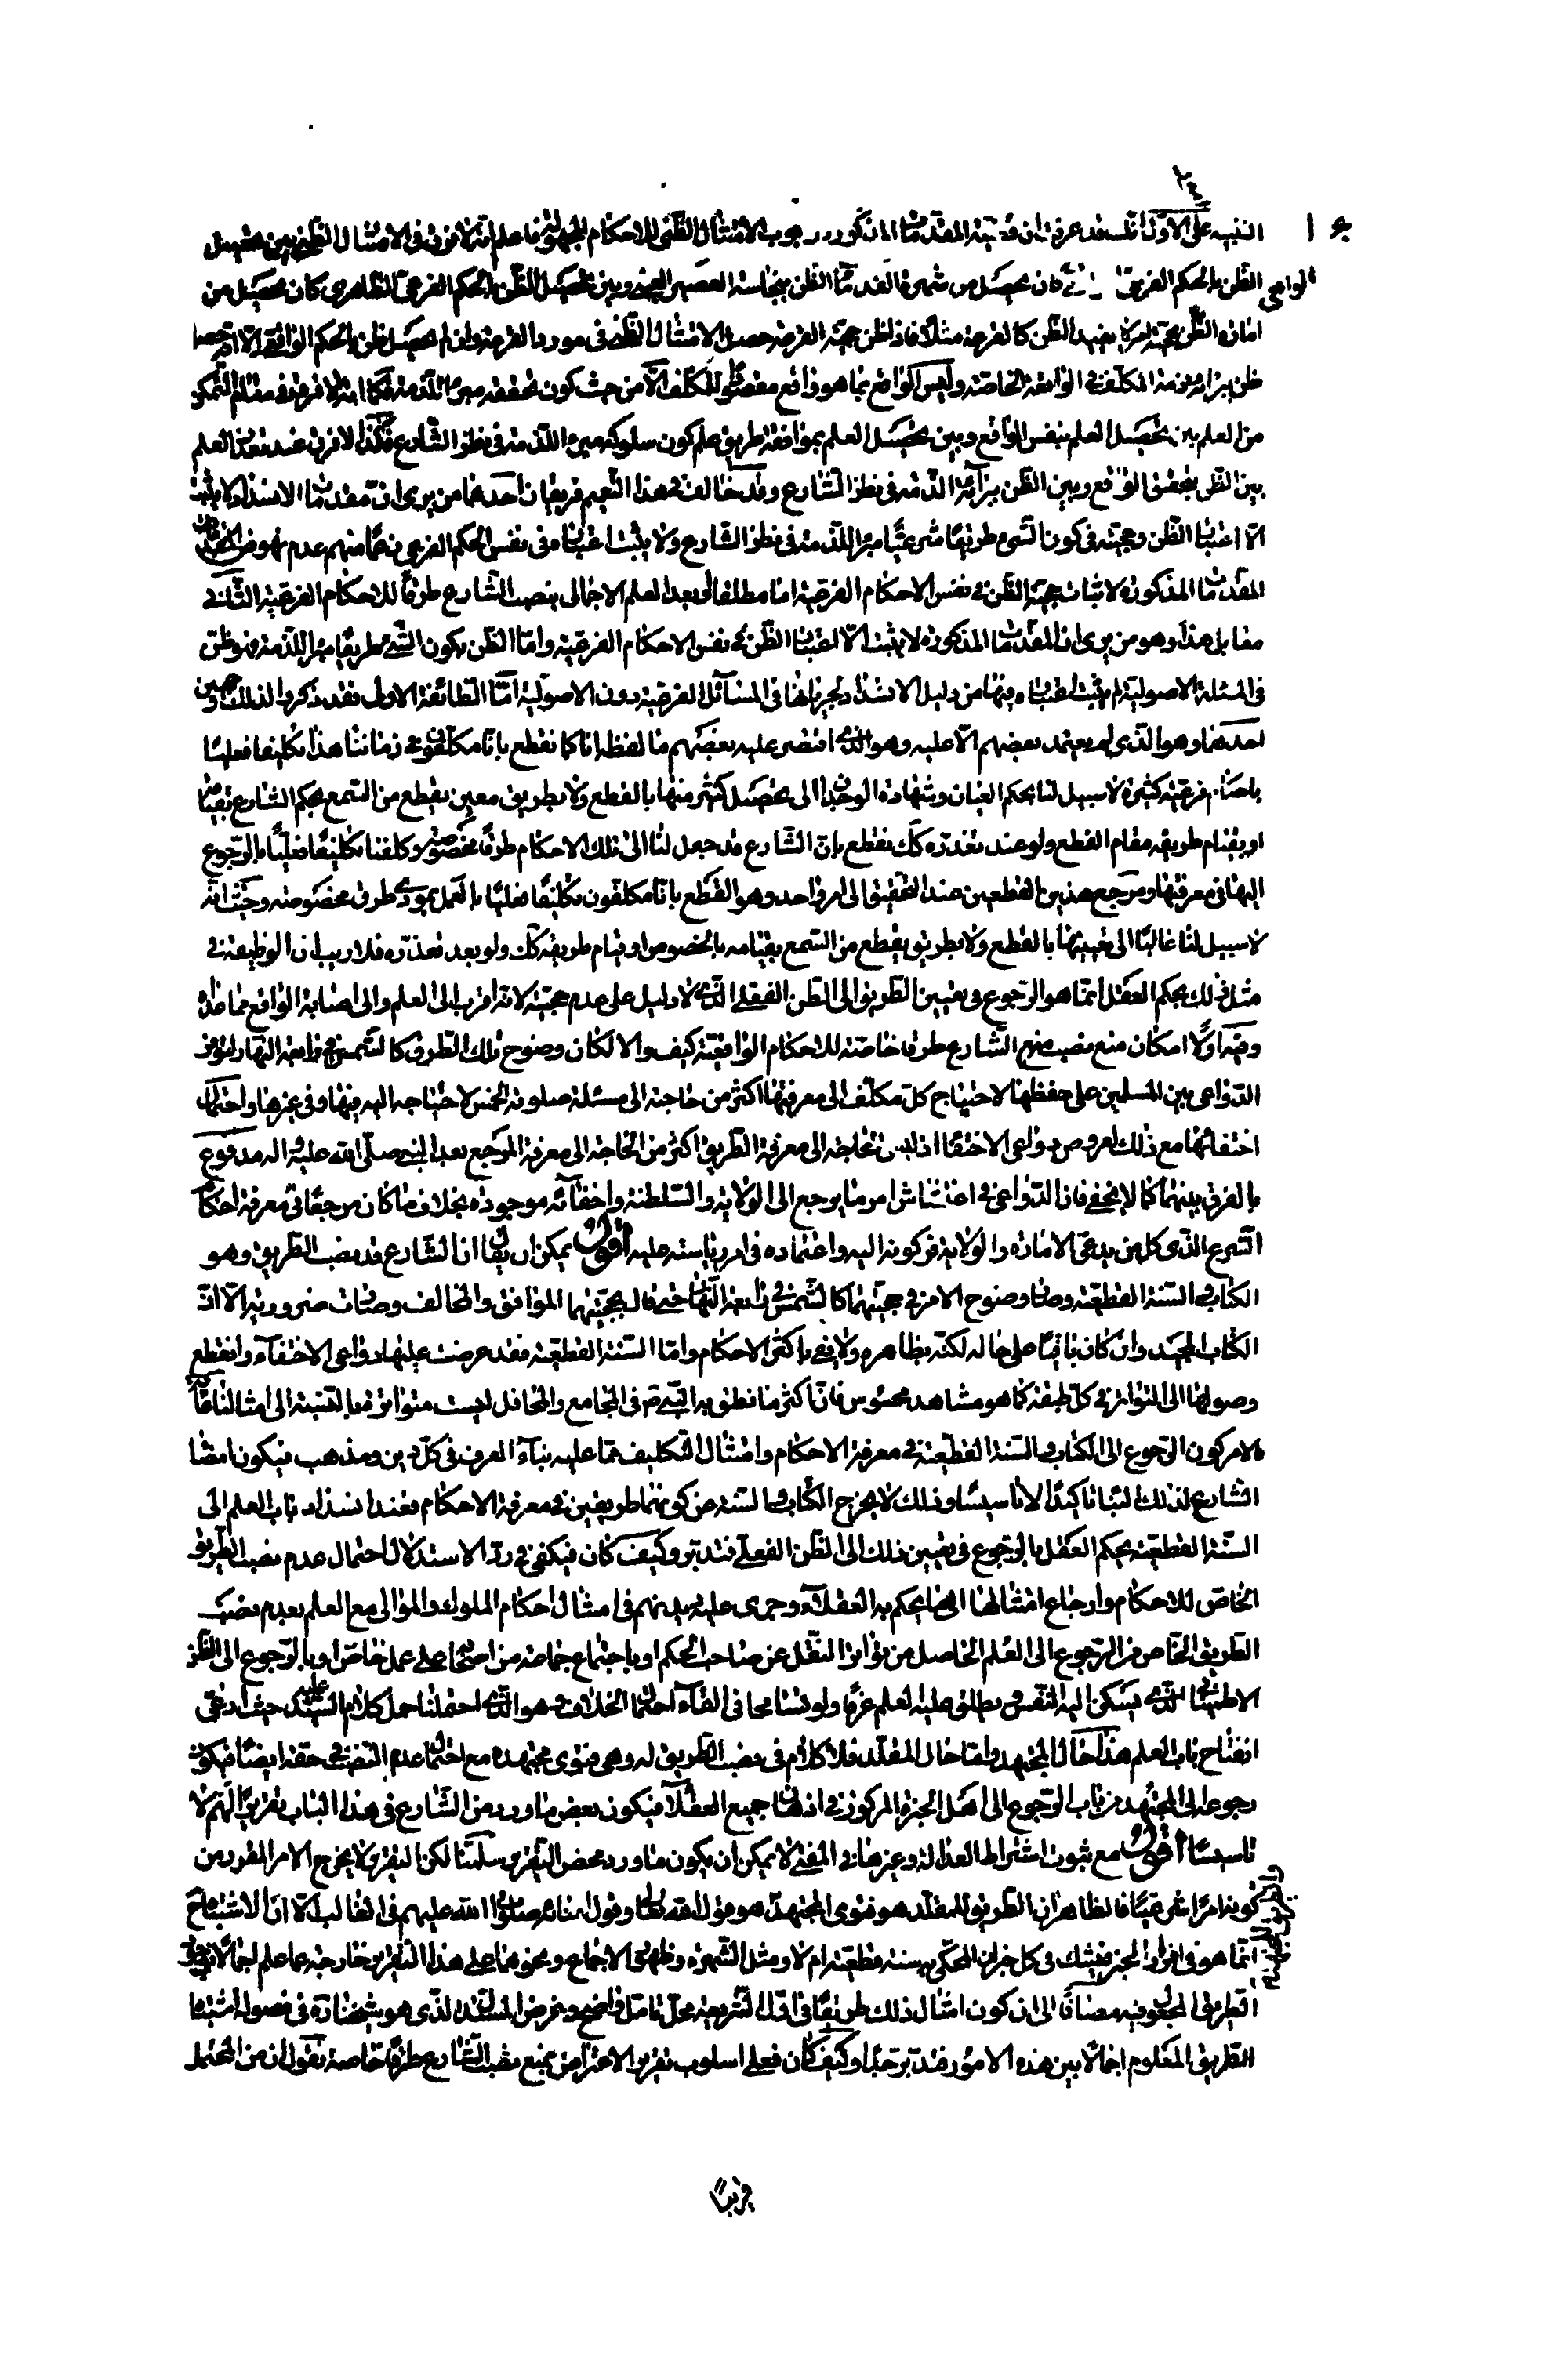 التنبيه على الاول انك قد عرفت ان قضية المقدمات المذكورة وجوب الامتثال الظنى للاحكام المجهولة فاعلم انه لا فرق فى الامتثال الظنى بين تحصيل
الظن بالحكم الفرعى الواقعى كان يحصل من شهرة القدماء الظن بنجاسة العصير العنبى وبين تحصيل الظن بالحكم الفرعى الظاهرى كان يحصل من
امارة الظن بحجية امر لا يفيد الظن كالقرعة مثلا فاذا ظن حجية القرعة حصل الامتثال الظنى فى مورد القرعة وان لم يحصل ظن بالحكم الواقعى الا انه حصل
ظن ببرائة ذمة المكلف فى الواقعة الخاصة وليس الواقع بما هو واقع مقصودا للمكلف الا من حيث كون تحققه مبرء للذمة فكما انه لا فرق فى مقام التمكن
من العلم بين تحصيل العلم بنفس الواقع وبين تحصيل العلم بموافقة طريق علم كون سلوكه مبرء للذمة فى نظر الشارع فكذا لا فرق عند تعذر العلم
بين الظن بتحقق الواقع وبين الظن ببرائة الذمة فى نظر الشارع وقد خالف فى هذا التعميم فريقان احدهما من يرى ان مقدمات الانسداد لا يثبت
الا اعتبار الظن وحجيته فى كون الشىء طريقا شرعيا مبرء للذمة فى نظر الشارع ولا يثبت اعتباره فى نفس الحكم الفرعى زعما منهم عدم نهوض
المقدمات المذكورة لاثبات حجية الظن فى نفس الاحكام الفرعية اما مطلقا او بعد العلم الاجمالى بنصب الشارع طرقا للاحكام الفرعية الثانى
مقابل هذا وهو من يرى ان المقدمات المذكورة لا يثبت الا اعتبار الظن فى نفس الاحكام الفرعية واما الظن بكون الشىء طريقا مبرء للذمة فهو ظن
فى المسئلة الاصولية لم يثبت اعتباره فيها من دليل الانسداد لجريانها فى المسائل الفرعية دون الاصولية اما الطائفة الاولى فقد ذكروا لذلك وجهين
احدهما وهو الذى لم يعتمد بعضهم الا عليه وهو الذى اقتصر عليه بعضهم ما لفظه انا كما نقطع بانا مكلفون فى زماننا هذا تكليفا فعليا
باحكام فرعية كثيرة لا سبيل لنا بحكم العيان وشهادة الوجدان الى تحصيل كثير منها بالقطع ولا بطريق معين يقطع من السمع بحكم الشارع بقيامه
او بقيام طريقه مقام القطع ولو عند تعذره كك نقطع بان الشارع قد جعل لنا الى تلك الاحكام طرقا مخصوصة وكلفنا تكليفا فعليا بالرجوع
اليها فى معرفتها ومرجع هذين القطعين عند التحقيق الى امر واحد وهو القطع بانا مكلفون تكليفا فعليا بالعمل بمؤدى طرق مخصوصة وحيث انه
لا سبيل لنا غالبا الى تعيينها بالقطع ولا بطريق يقطع من السمع بقيامه بالخصوص او قيام طريقه كك ولو بعد تعذره فلا ريب ان الوظيفة فى
مثل ذلك بحكم العقل انما هو الرجوع فى تعيين الطريق الى الظن الفعلى الذى لا دليل على عدم حجيته لانه اقرب الى العلم والى اصابة الواقع مما عداه
وفيه اولا امكان منع نصب الشارع طرقا خاصة للاحكام الواقعية كيف والا لكان وضوح تلك الطرق كالشمس فى رابعة النهار لتوفر
الدواعى بين المسلمين على حفظها لاحتياج كل مكلف الى معرفتها اكثر من حاجته الى مسئلة صلوة الخمس لاحتياجه اليه فيها وفى غيرها واحتمال
اختفائها مع ذلك لعروض دواعى الاختفاء اذ ليس الحاجة الى معرفة الطريق اكثر من الحاجة الى معرفة المرجع بعد النبى صلى الله عليه واله مدفوع
بالفرق بينهما كما لا يخفى فان الدواعى فى اغتشاش امر ما يرجع الى الولاية والسلطنة واخفائه موجودة بخلاف ما كان مرجعا فى معرفة احكام
الشرع الذى كل من يدعى الامارة والولاية فركونه اليه واعتماده فى امر رياسته عليه اقول يمكن ان يقال ان الشارع قد نصب الطريق وهو
الكتاب والسنة القطعية وصار وضوح الامر فى حجيتهما كالشمس فى رابعة النهار حتى قال بحجيتهما الموافق والمخالف وصارت ضرورية الا ان
الكتاب المجيد وان كان باقيا على حاله لكنه بظاهره ولا يفى باكثر الاحكام واما السنة القطعية فقد عرضت عليها دواعى الاختفاء وانقطع
وصولها الى التواتر فى كل طبقة كما هو مشاهد محسوس فان اكثر ما نطق به النبى ص فى المجامع والمحافل ليست متواترة بالنسبة الى امثالنا
الامر كون الرجوع الى الكتاب والسنة القطعية فى معرفة الاحكام وامتثال التكليف مما عليه بناء العرف فى كل دين ومذهب فيكون امضاء
الشارع لذلك البناء تاكيدا لا تاسيسا وذلك لا يخرج الكتاب والسنة عن كونهما طريقين فى معرفة الاحكام فعند انسداد باب العلم الى
السنة القطعية يحكم العقل بالرجوع فى تعيين ذلك الى الظن الفعلى فتدبر وكيف كان فيكفى فى رد الاستدلال احتمال عدم نصب الطريق
الخاص للاحكام وارجاع امتثالها الى ما يحكم به العقلاء وجرى عليه ديدنهم فى امتثال احكام الملوك والموالى مع العلم بعدم نصب
الطريق الخاص من الرجوع الى العلم الحاصل من تواتر النقل عن صاحب الحكم او باجتماع جماعة من اصحابه على عمل خاص او بالرجوع الى الظن
الاطمينانى الذى يسكن اليه النفس ويطلق عليه العلم عرفا ولو تسامحا فى الغاء احتمال الخلاف وهو الذى احتملنا حمل كلام السيد عليه حيث ادعى
انفتاح باب العلم هذا حال المجتهد واما حال المقلد فلا كلام فى نصب الطريق له وهى فتوى مجتهده مع احتمال عدم النصب فى حقه ايضا فيكون
رجوعه الى المجتهد من باب الرجوع الى اهل الخبرة المركوز فى اذهان جميع العقلاء فيكون بعض ما ورد من الشارع فى هذا الباب تقريرا لهم لا
تاسيسا اقول مع ثبوت اشتراط العدالة وغيرها فى المفتى لا يمكن ان يكون ما ورد محض التقرير سلمنا لكن التقرير لا يخرج الامر المقرر من
كونه امرا شرعيا فالظاهر ان الطريق للمقلد هو فتوى المجتهد هو قول الله تعالى وقول امنائه صلوات الله عليهم فى الغالب الا ان الاشتباه
انما هو فى افراد الخبر فيشك فى كل خبر انه المحكى به سنة قطعية ام لا ومثل الشهرة وظهور الاجماع ونحوهما على هذا التقرير خارجة عما علم اجمالا
الطريق المجعول فيه مضافا الى ان كون امثال ذلك طريقا فى اول الشريعة محل تامل واضح وغرض المستدل الذى هو بيشيده فى فصوله اشتباه
الطريق المعلوم اجمالا بين هذه الامور فتدبر جدا وكيف كان فعلى اسلوب تقرير الاعتراض بمنع نصب الشارع طرقا خاصة نقول ان من المحتمل
قريبا